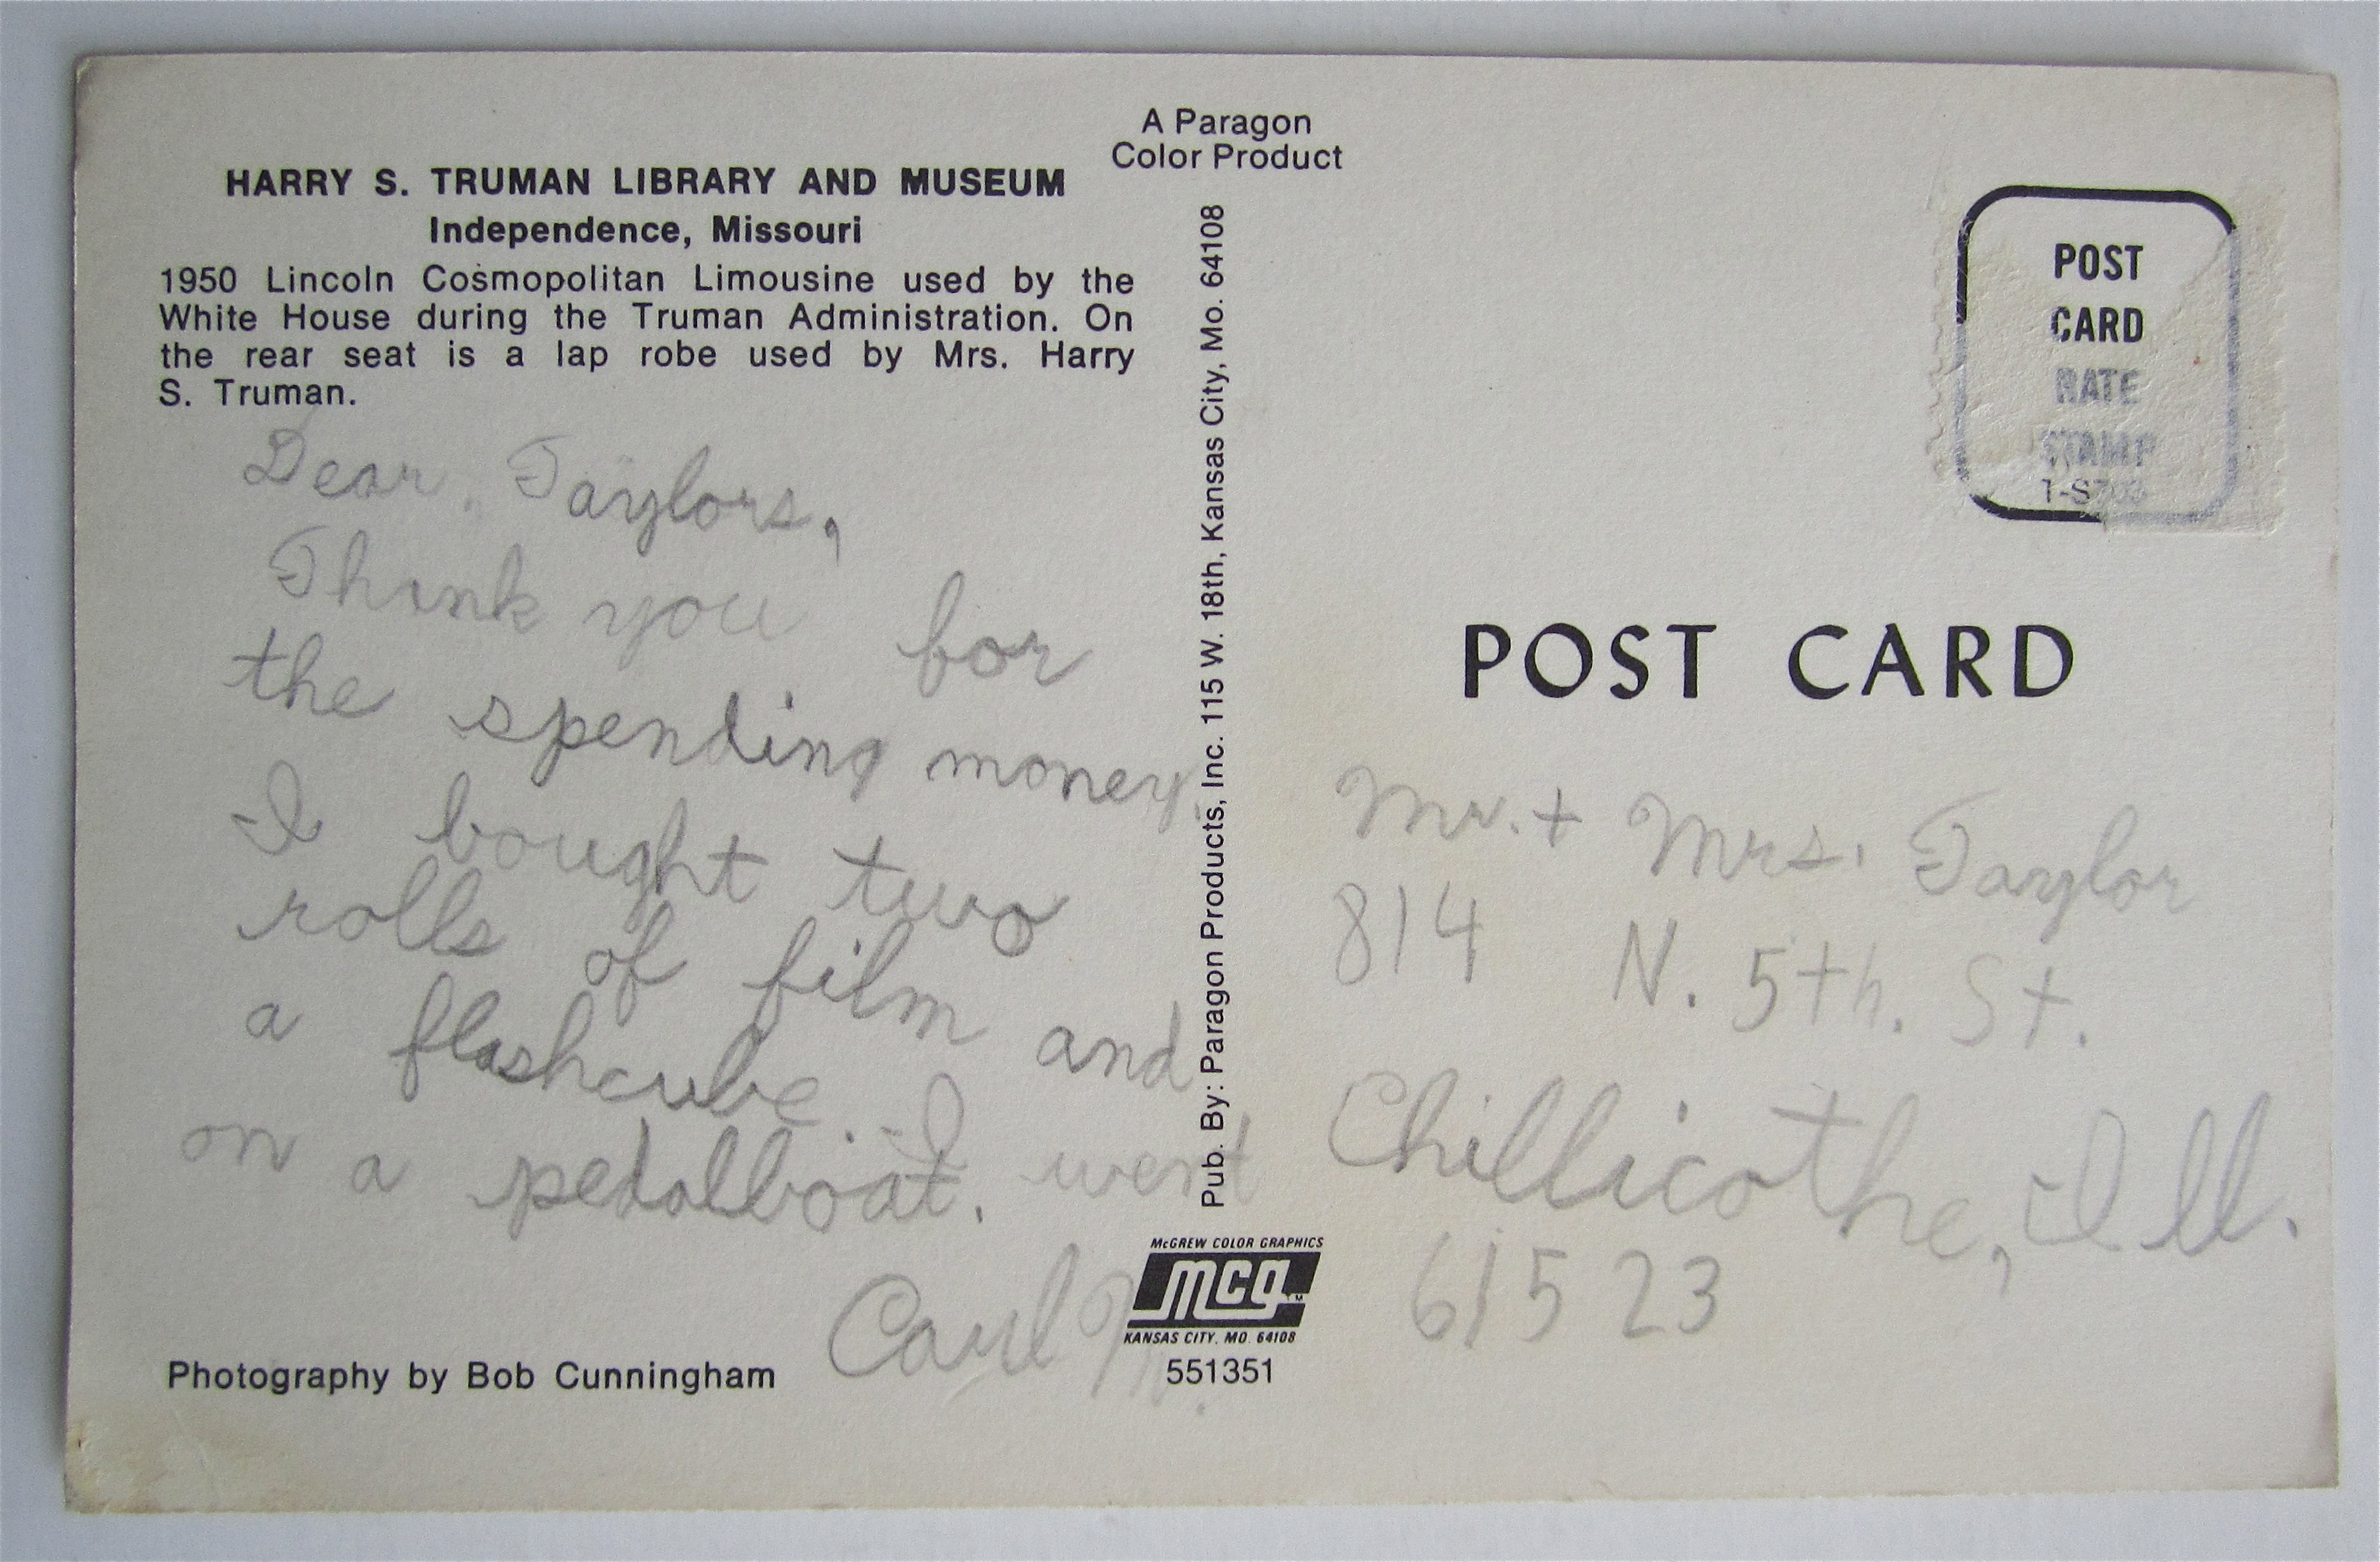 A Paragon
Color Product
HARRY S. TRUMAN LIBRARY AND MUSEUM
Independence, Missouri
1950 Lincoln Cosmopolitan Limousine used by the
White House during the Truman Administration. On
the rear seat is a lap robe used by Mrs. Harry
S. Truman.
Dear Taylors,
Thank you for
the spending money.
I bought two
rolls of film and
a flashcube. I went
on a pedalboat.
Carl M.
Photography by Bob Cunningham
Pub. By: Paragon Products, Inc. 115 W. 18th, Kansas City, Mo. 64108
McGREW COLOR GRAPHICS
mcg TM
KANSAS CITY, MO. 64108
551351
POST
CARD
RATE
STAMP
POST CARD
Mr. + Mrs. Taylor
814 N. 5th. St.
Chillicothe, Ill.
61523